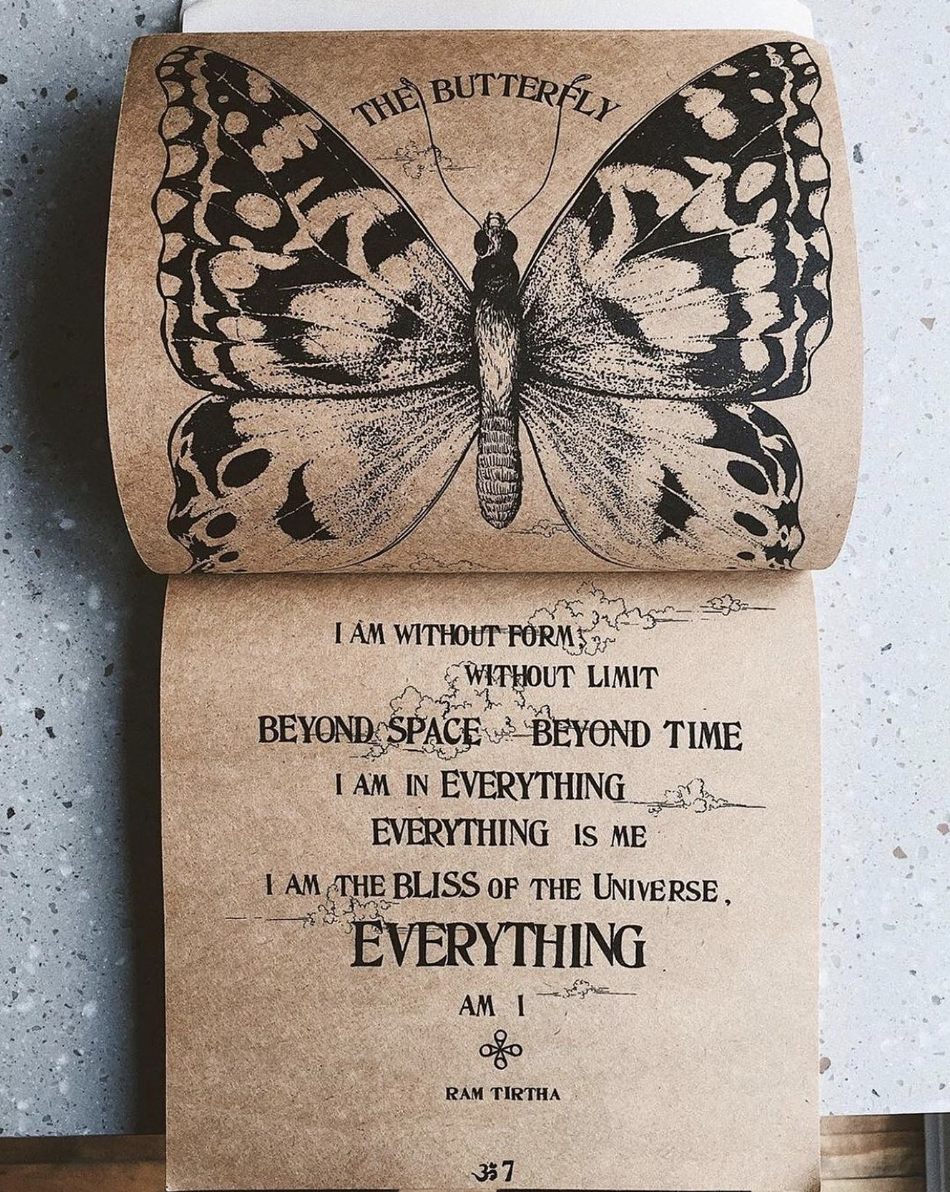 THE BUTTERFLY
I AM WITHOUT FORM,
WITHOUT LIMIT
BEYOND SPACE BEYOND TIME
I AM IN EVERYTHING
EVERYTHING IS ME
I AM THE BLISS OF THE UNIVERSE,
EVERYTHING
AM I
RAM TIRTHA
ॐ7